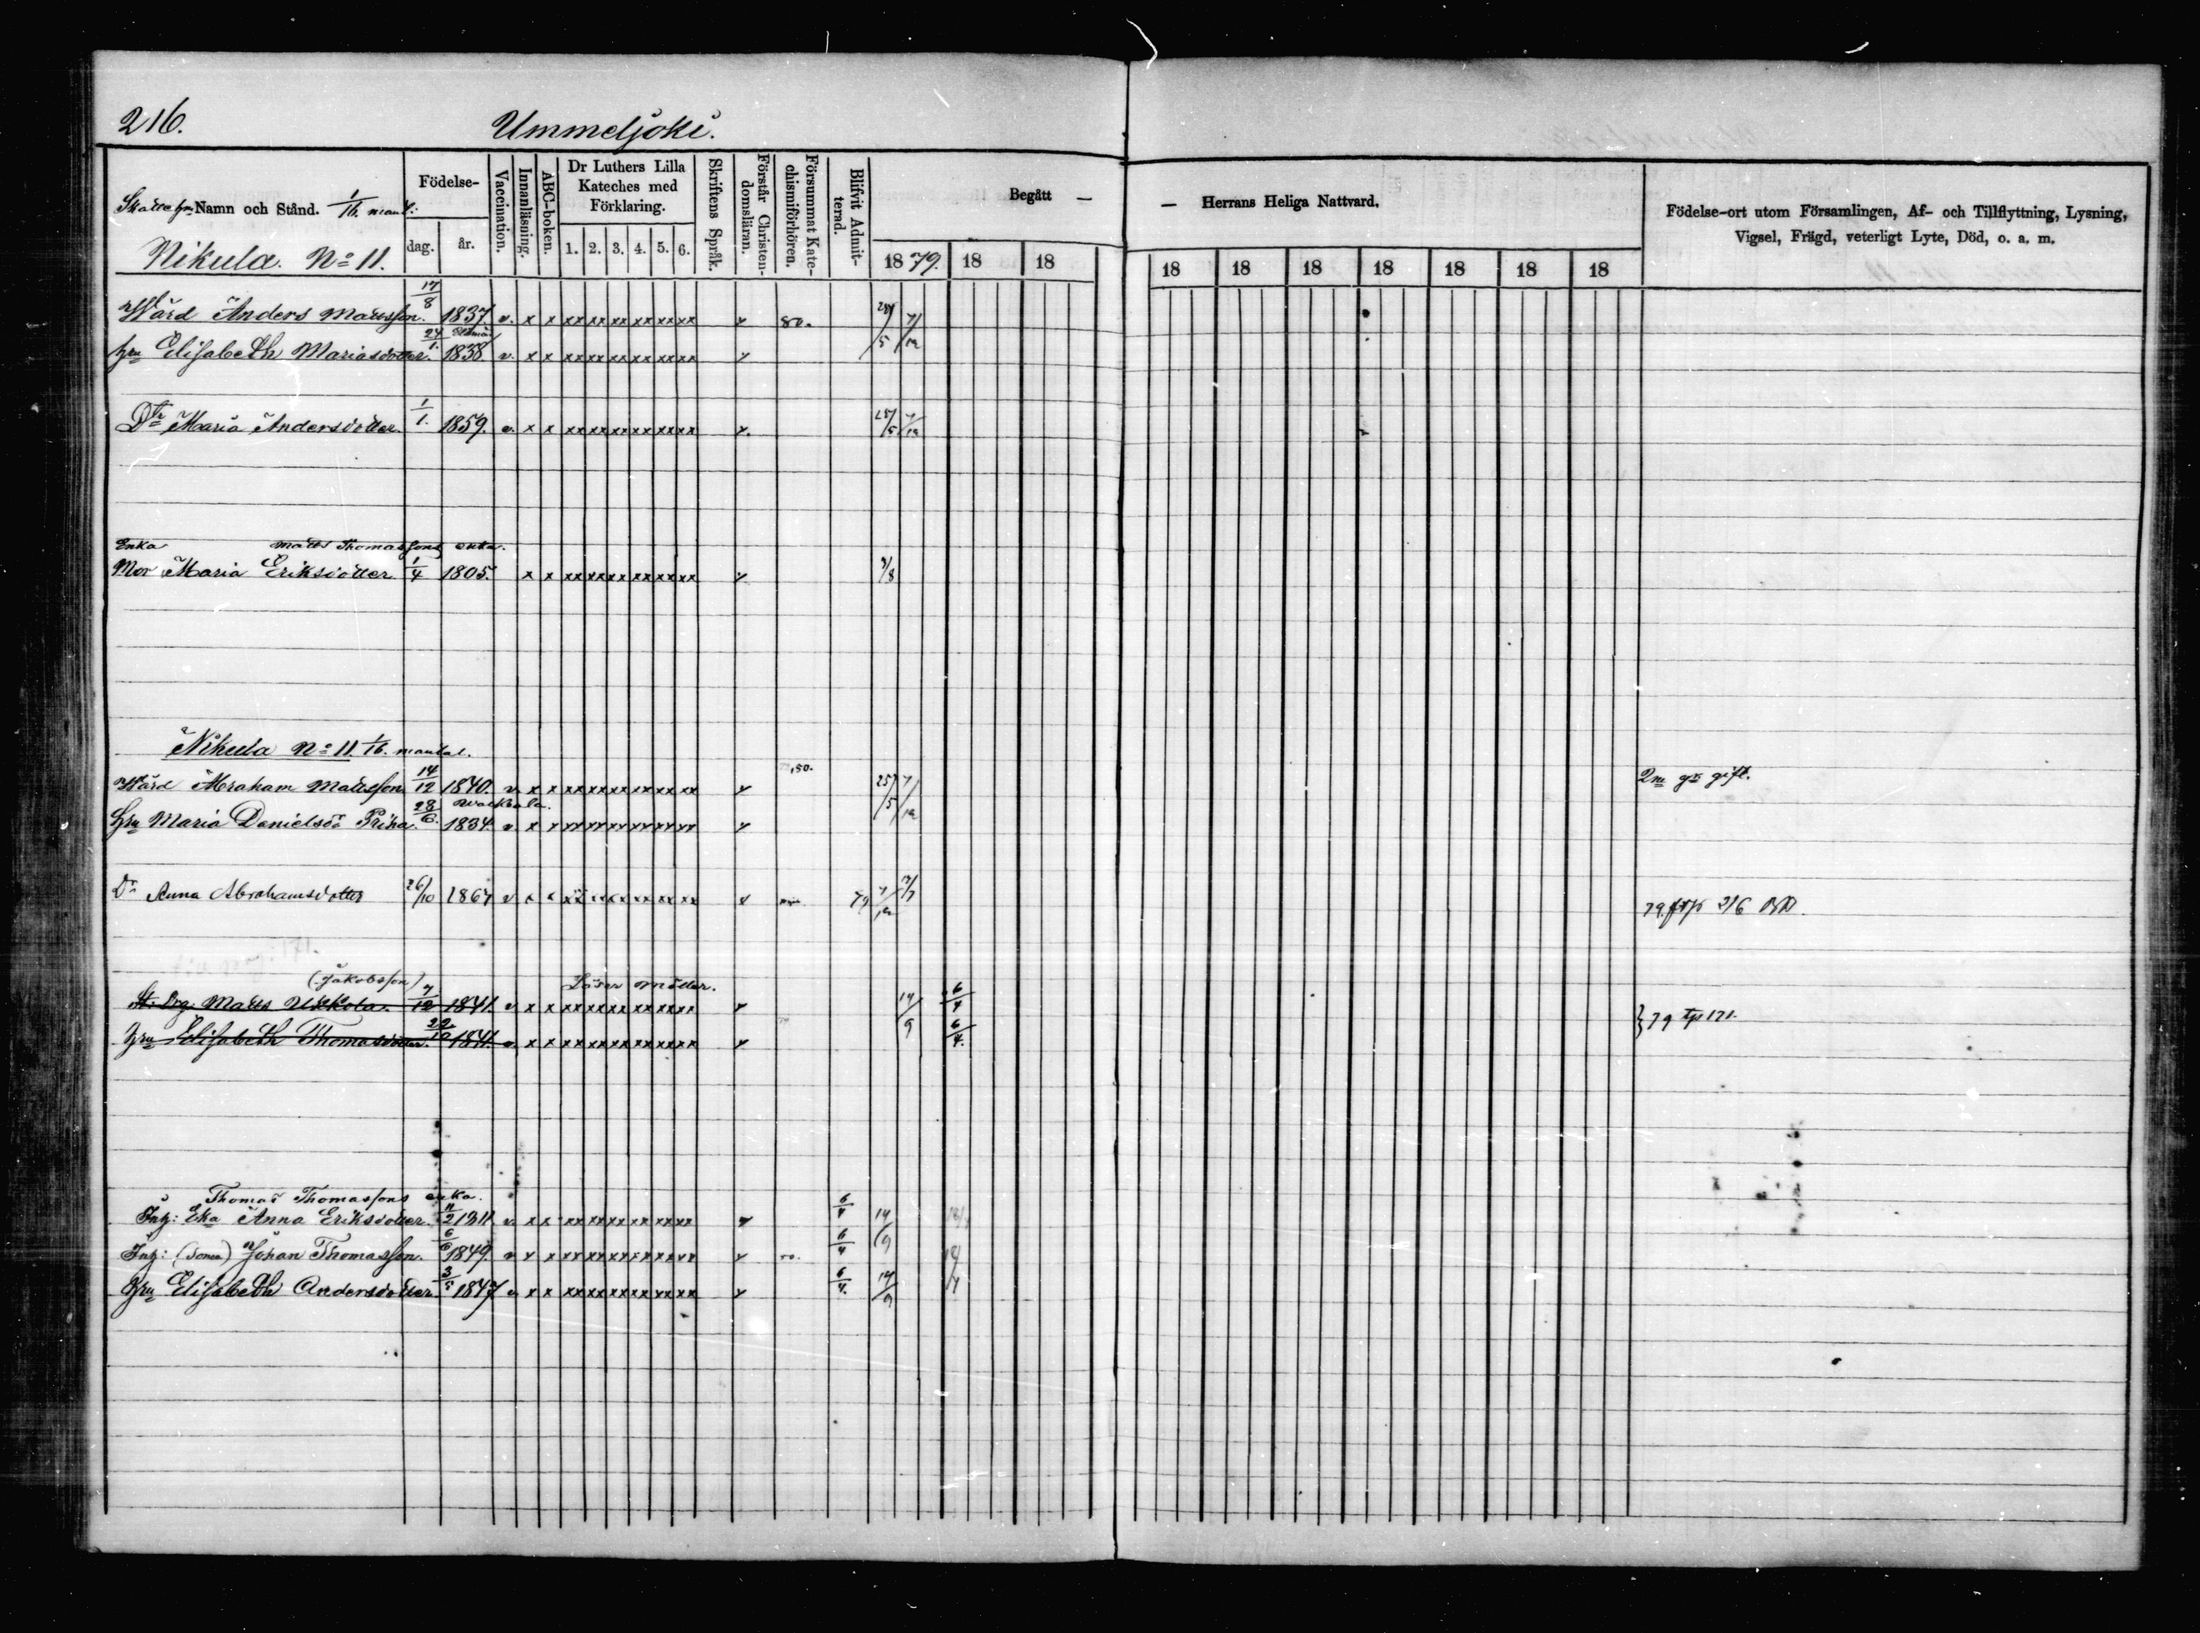 216.
Ummeljoki.
Skatte hm Namn och Stånd. 1/16. mant.:
Födelse-
dag. år.
Vaccination.
Innanläsning.
ABC-boken.
Dr Luthers Lilla Kateches med Förklaring.
1. 2. 3. 4. 5. 6.
Skriftens Språk.
Förstår Christen-domsläran.
Försummat Kate-chismiförhören.
Blifvit Admit-terad.
Begått —
— Herrans Heliga Nattvard.
1879. 18 18 18 18 18 18 18 18 18
Födelse-ort utom Församlingen, Af- och Tillflyttning, Lysning,
Vigsel, Frägd, veterligt Lyte, Död, o. a. m.
Nikula. No 11.
Wärd Anders Matsson. 17/8 1837. v. x x xx xx xx xx xx xx 80.
hru Elisabeth Mariasdotter. 24/1. 1838 v. x x xx xx xx xx xx xx
Dtr Maria Andersdotter. 1/1. 1859. v. x x xx xx xx xx xx xx 25/5 7/12
Enka Matts Thomassons enka.
Mor Maria Eriksdotter 1/4 1805. x x xx xx xx xx xx xx
Nikula No 11. 1/16. mantal.
Wärd Abraham Matsson 14/12 1840. v. x x xx xx xx xx xx xx 25/5 7/12 2m gr gift.
Walkiala.
hru Maria Danielsdr Prika. 28/6. 1834 v. x x xx xx xx xx xx xx
Dr Anna Abrahamsdotter 26/10 1864 v x x xx xx xx xx xx xx 79 7/12 216
(Jakobsson) Löser måttar.
Matts Ukkola. 7/12 1841. v x x xx xx xx xx xx xx 14/9 6/4
} 79 tp 171.
hru Elisabeth Thomasdotter. 1841. v. x x xx xx xx xx xx xx 6/4.
Thomas Thomassons enka.
Inh: Eka Anna Eriksdotter. 11/2 1811 v. x x xx xx xx xx xx xx 6/4 14/9
Inh: (Sonen) Johan Thomasson. 6/6 1849. v x x xx xx xx xx xx xx 6/4
hru Elisabeth Andersdotter 3/5 1847 v x x xx xx xx xx xx xx 6/4. 14/9